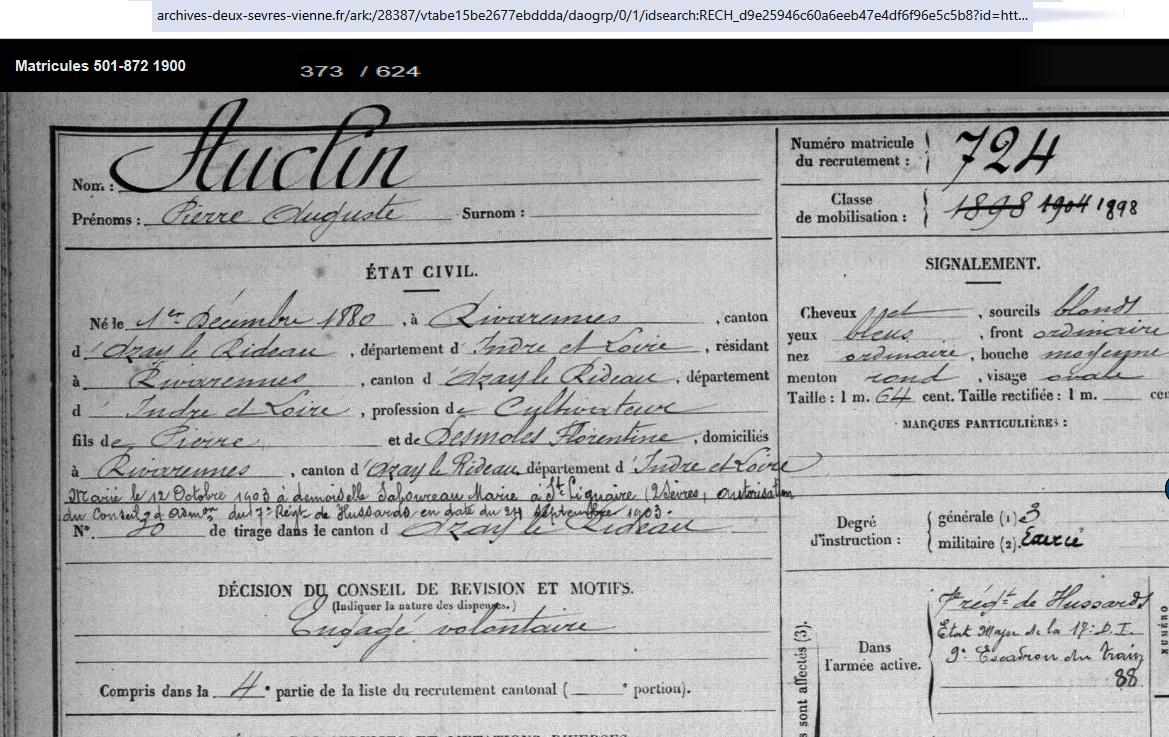 archives-deux-sevres-vienne.fr/ark:/28387/vtabe15be2677ebddda/daogrp/0/1/idsearch:RECH_d9e25946c60a6eeb47e4df6f96e5c5b8?id=htt...
Matricules 501-872 1900
373 / 624
Nom : Auclin
Prénoms : Pierre Auguste Surnom :
ÉTAT CIVIL.
Né le 1er Décembre 1880, à Rivarennes, canton
d'Azay le Rideau, département d'Indre et Loire, résidant
à Rivarennes, canton d'Azay le Rideau, département
d'Indre et Loire, profession de Cultivateur
fils de Pierre et de Desmoles Florentine, domiciliés
à Rivarennes, canton d'Azay le Rideau, département d'Indre et Loire
Marié le 12 Octobre 1903 à demoiselle Saboureau Marie à St Liguaire (2 Sèvres, autorisation
du Conseil d'admon du 7e Régt de Hussards en date du 24 Septembre 1903.
N° 20 de tirage dans le canton d'Azay le Rideau
DÉCISION DU CONSEIL DE REVISION ET MOTIFS.
(Indiquer la nature des dispenses.)
Engagé volontaire
Compris dans la 4e partie de la liste du recrutement cantonal ( e portion).
Numéro matricule
du recrutement : 724
Classe
de mobilisation : 1898 1904 1898
SIGNALEMENT.
Cheveux , sourcils blonds
yeux bleus, front ordinaire
nez ordinaire, bouche moyenne
menton rond, visage ovale
Taille : 1 m. 64 cent. Taille rectifiée : 1 m. cen
MARQUES PARTICULIÈRES :
Degré
d'instruction :
générale (1) 3
militaire (2).
Dans
l'armée active.
7e régt de Hussards
Etat Major de la 17e D.I.
9e Escadron du train
88
s sont affectés (3).
NUMÉRO